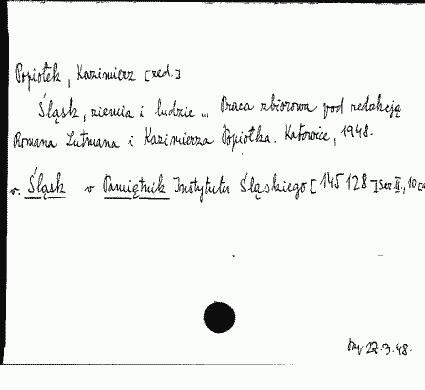 Popiołek, Kazimierz [red.]
Śląsk, ziemia i ludzie ... Praca zbiorowa pod redakcją
Romana Lutmana i Kazimierza Popiołka. Katowice, 1948.
v. Śląsk v Pamiętnik Instytutu Śląskiego [145128-] Ser II, 10
22.3.48.